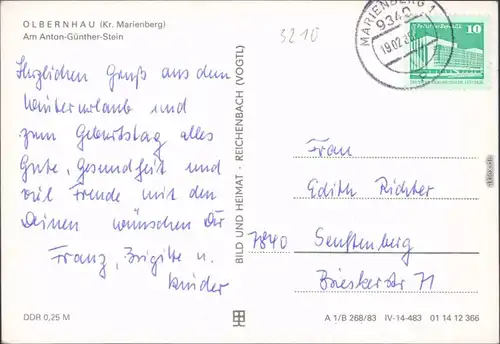 OLBERNHAU (Kr. Marienberg)
Am Anton-Günther-Stein
3210
MARIENBERG 1
9340
19.02.85
DDR
10
Herzlichen Gruß aus dem
Winterurlaub und
zum Geburtstag alles
Gute, Gesundheit und
viel Freude mit den
Deinen wünschen Dir
Franz, Brigitte u.
Kinder
BILD UND HEIMAT · REICHENBACH (VOGTL)
Frau
Edith Richter
7840 Senftenberg
Brieskerstr. 71
DDR 0,25 M
A 1/B 268/83 IV-14-483 01 14 12 366